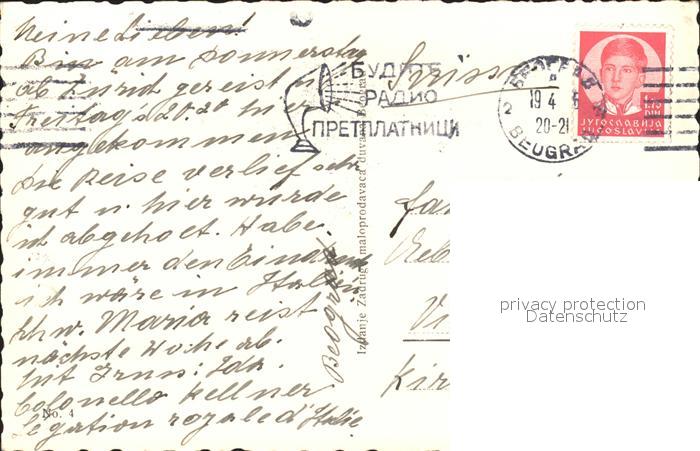 Meine Lieben!
Bin am Donnerstag
ab Zürich gereist
Freitag's 20.20 hier
angekommen
Die Reise verlief sehr
gut u. hier wurde
ich abgeholt. Habe
immer den Eindruck
ich wäre in Italien
Maria reist
nächste Woche ab.
Mit Gruss: Ida
Colonello Kellner
Legation royale d'Italie
No. 4
Beograd
Izdanje Zadruge maloprodavaca duvana Beograd
БУДИТЕ
РАДИО
ПРЕТПЛАТНИЦИ
Suisse
БЕОГРАД
2
19 4
20-21
BEOGRAD
ЈУГОСЛАВИЈА
JUGOSLAVIJA
privacy protection
Datenschutz